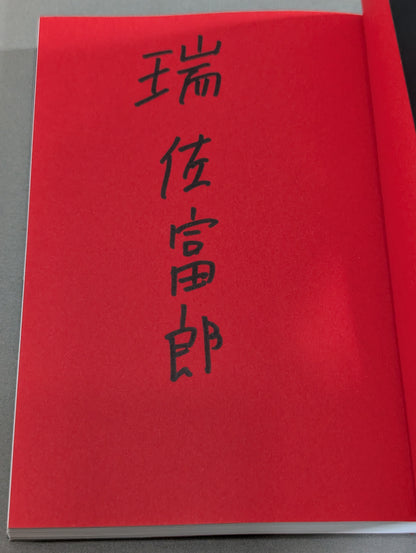 瑞佐富郎